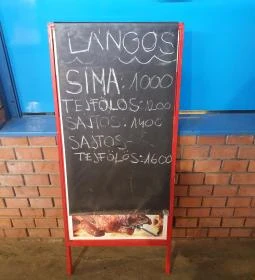 LÁNGOS
SIMA: 1000
TEJFÖLÖS: 1200
SAJTOS: 1400
SAJTOS-
TEJFÖLÖS: 1600